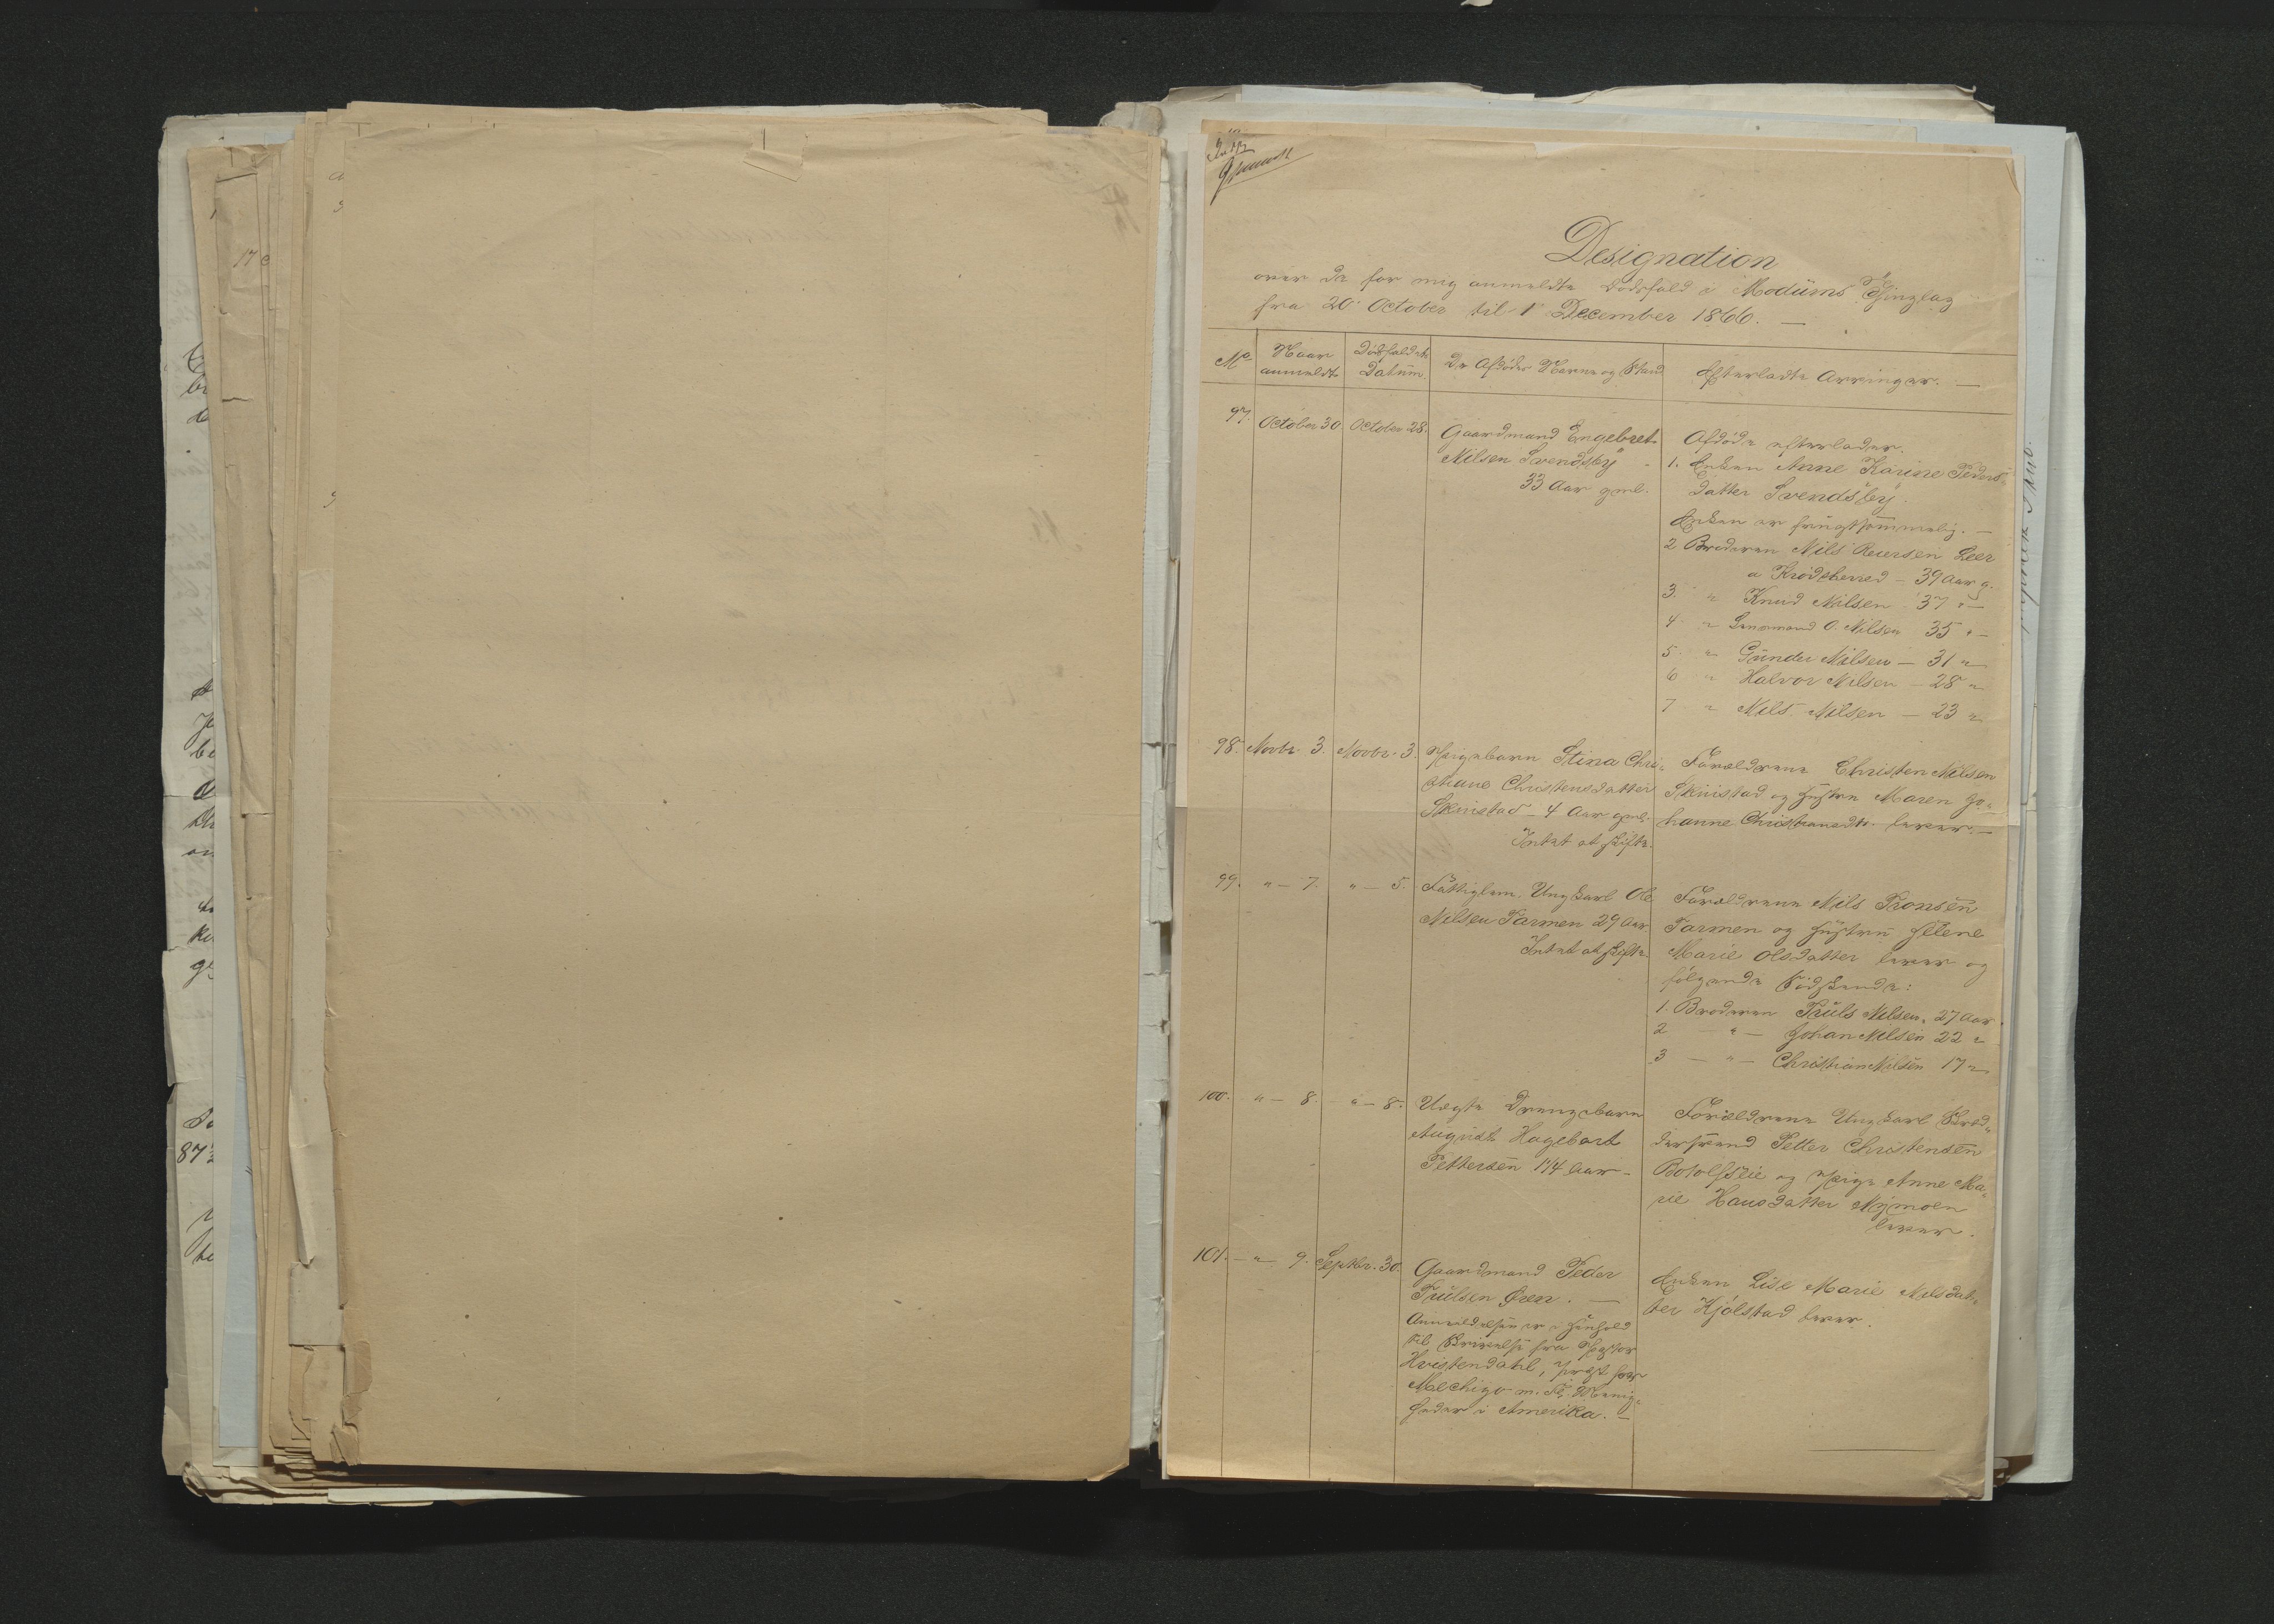 Designation
over de for mig anmeldte Dødsfald i Modums Thinglag
fra 20 October til 1 December 1866. —
No
Naar
anmeldt
Dødsfaldets
Datum.
De Afdødes Navne og Stand
Efterladte Arvinger. —
97.
October 30
October 28.
Gaardmand Engebret
Nilsen Svendsby
33 Aar gml.
Afdøde efterlader.
1. Enken Anne Karine Peders-
datter Svendsby.
Enken er frugtsommelig. —
2 Broderen Nils Reiersen Leer
a Krødsherred — 39 Aar g.
3. " Knud Nilsen 37 " —
4 " Lensmand O. Nilsen 35 " —
5. " Gunder Nilsen — 31 "
6 " Halvor Nilsen — 28 "
7 " Nils Nilsen — 23 "
98.
Novbr. 3.
Novbr. 3.
Pigebarn Stina Chri-
stiane Christensdatter
Skinstad — 4 Aar gml.
Intet at skifte.
Forældrene Christen Nilsen
Skinstad og Hustru Maren Jo-
hanne Christiansdtr. lever. —
99.
" — 7.
" — 5.
Fattiglem Ungkarl Ole
Nilsen Tarmen 29 Aar
Intet at skifte.
Forældrene Nils Tronsen
Tarmen og Hustru Helene
Marie Olsdatter lever og
følgende Sødskende:
1. Broderen Truls Nilsen, 27 Aar.
2 — " — Johan Nilsen 22 "
3 — " — Christian Nilsen 17 "
100.
" — 8.
" — 8.
Uægte Drengebarn
August Hagebart
Pettersen 1 1/4 Aar —
Forældrene Ungkarl Skræd-
dersvend Petter Christensen
Botolfseie og Pige Anne Ma-
rie Hansdatter Nymoen
lever.
101.
— " — 9.
Septbr. 30.
Gaardmand Peder
Trulsen Øren. —
Anmeldelsen er i Henhold
til Skrivelse fra Pastor
Hvistendahl, Præst for
Mechigo m. Fl. Menig-
heder i Amerika. —
Enken Lise Marie Nilsdat-
ter Kjølstad lever.